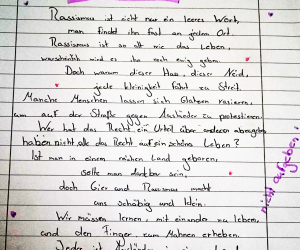 Rassismus ist nicht nur ein leeres Wort,
man findet ihn fast an jedem Ort.
Rassismus ist so alt wie das Leben,
warscheinlich wird es ihn noch ewig geben.
Doch warum dieser Hass, dieser Neid,
jede kleinigkeit führt zu Streit.
Manche Menschen lassen sich Glatzen rasieren,
um auf der Straße gegen Ausländer zu protestieren.
Wer hat das Recht ein Urteil über anderen abzugeben,
haben nicht alle das Recht auf ein schönes Leben?
Ist man in einem reichen Land geboren,
sollte man dankbar sein,
doch Gier und Rassismus macht
uns schäbig und klein.
Wir müssen lernen, mit einander zu leben,
und den Finger, zum Mahnen erheben.
Jeder ist Ausländer
nicht aufgeben!